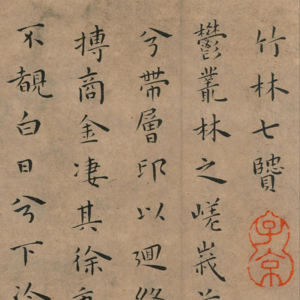 竹林七牘
鬱叢林之嵯峩
兮帶層邱以迴
摶商金凄其徐
不覩白日兮下
子京